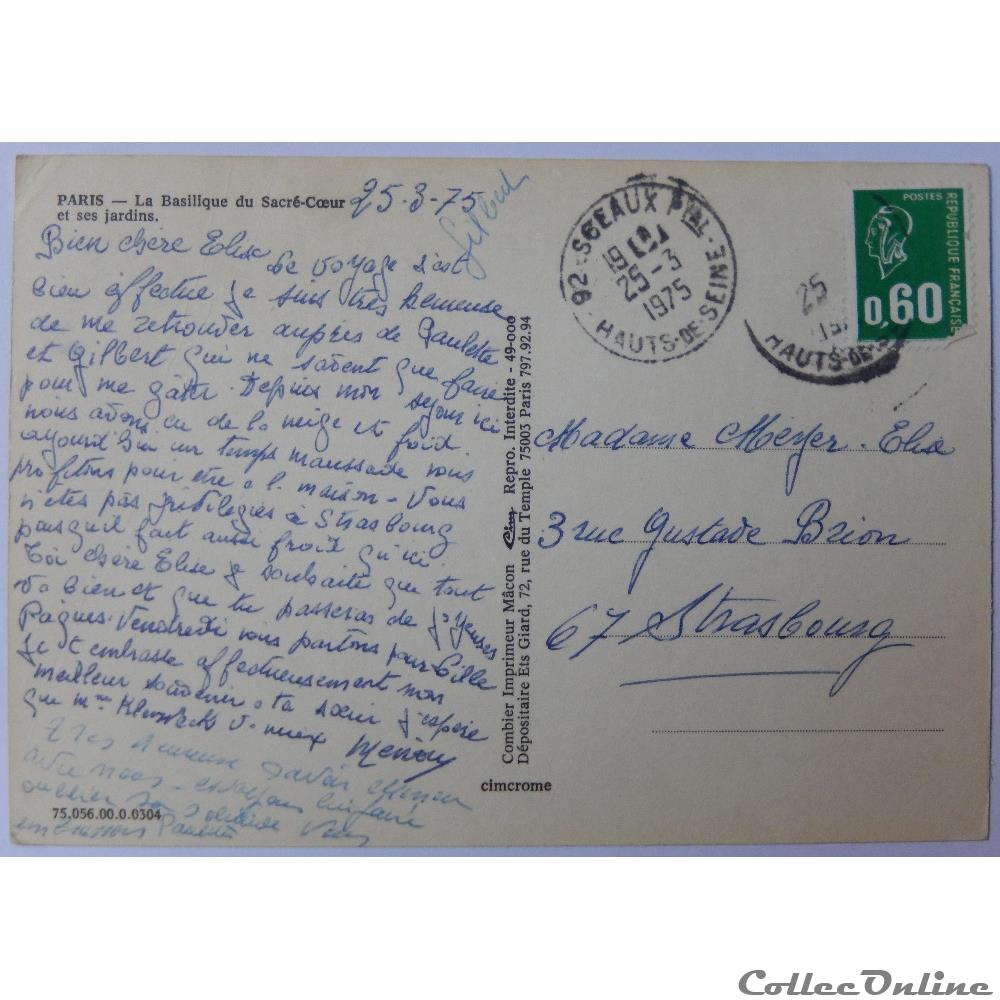 PARIS — La Basilique du Sacré-Cœur
et ses jardins.
25-3-75
Gilbert
Bien chère Elise Le voyage s'est
bien effectué je suis très heureuse
de me retrouver auprès de Paulette
et Gilbert qui ne savent que faire
pour me gâter. Depuis mon séjour ici
nous avons eu de la neige et froid.
aujourd'hui un temps maussade nous
profitons pour être à la maison - Vous
n'êtes pas privilégiés à Strasbourg
puisqu'il fait aussi froid qu'ici.
Toi chère Elise je souhaite que tout
va bien et que tu passeras de joyeuses
Pâques. Vendredi nous partons pour Lille
Je t'embrasse affectueusement mon
meilleur souvenir à ta sœur j'espère
que Mme va mieux
Très heureuse d'avoir
avec nous - essayons lui faire
oublier sa solitude Vous
embrassons Paulette
75.056.00.0.0304
Combier Imprimeur Mâcon Cim Repro. Interdite - 49-000
Dépositaire Ets Giard, 72, rue du Temple 75003 Paris 797.92.94
cimcrome
92 - SCEAUX PPAL
19H
25-3
1975
HAUTS-DE-SEINE
25
HAUTS-DE-S
POSTES
REPUBLIQUE FRANÇAISE
0,60
Madame Meyer Elise
3 rue Gustave Brion
67 Strasbourg
CollecOnline